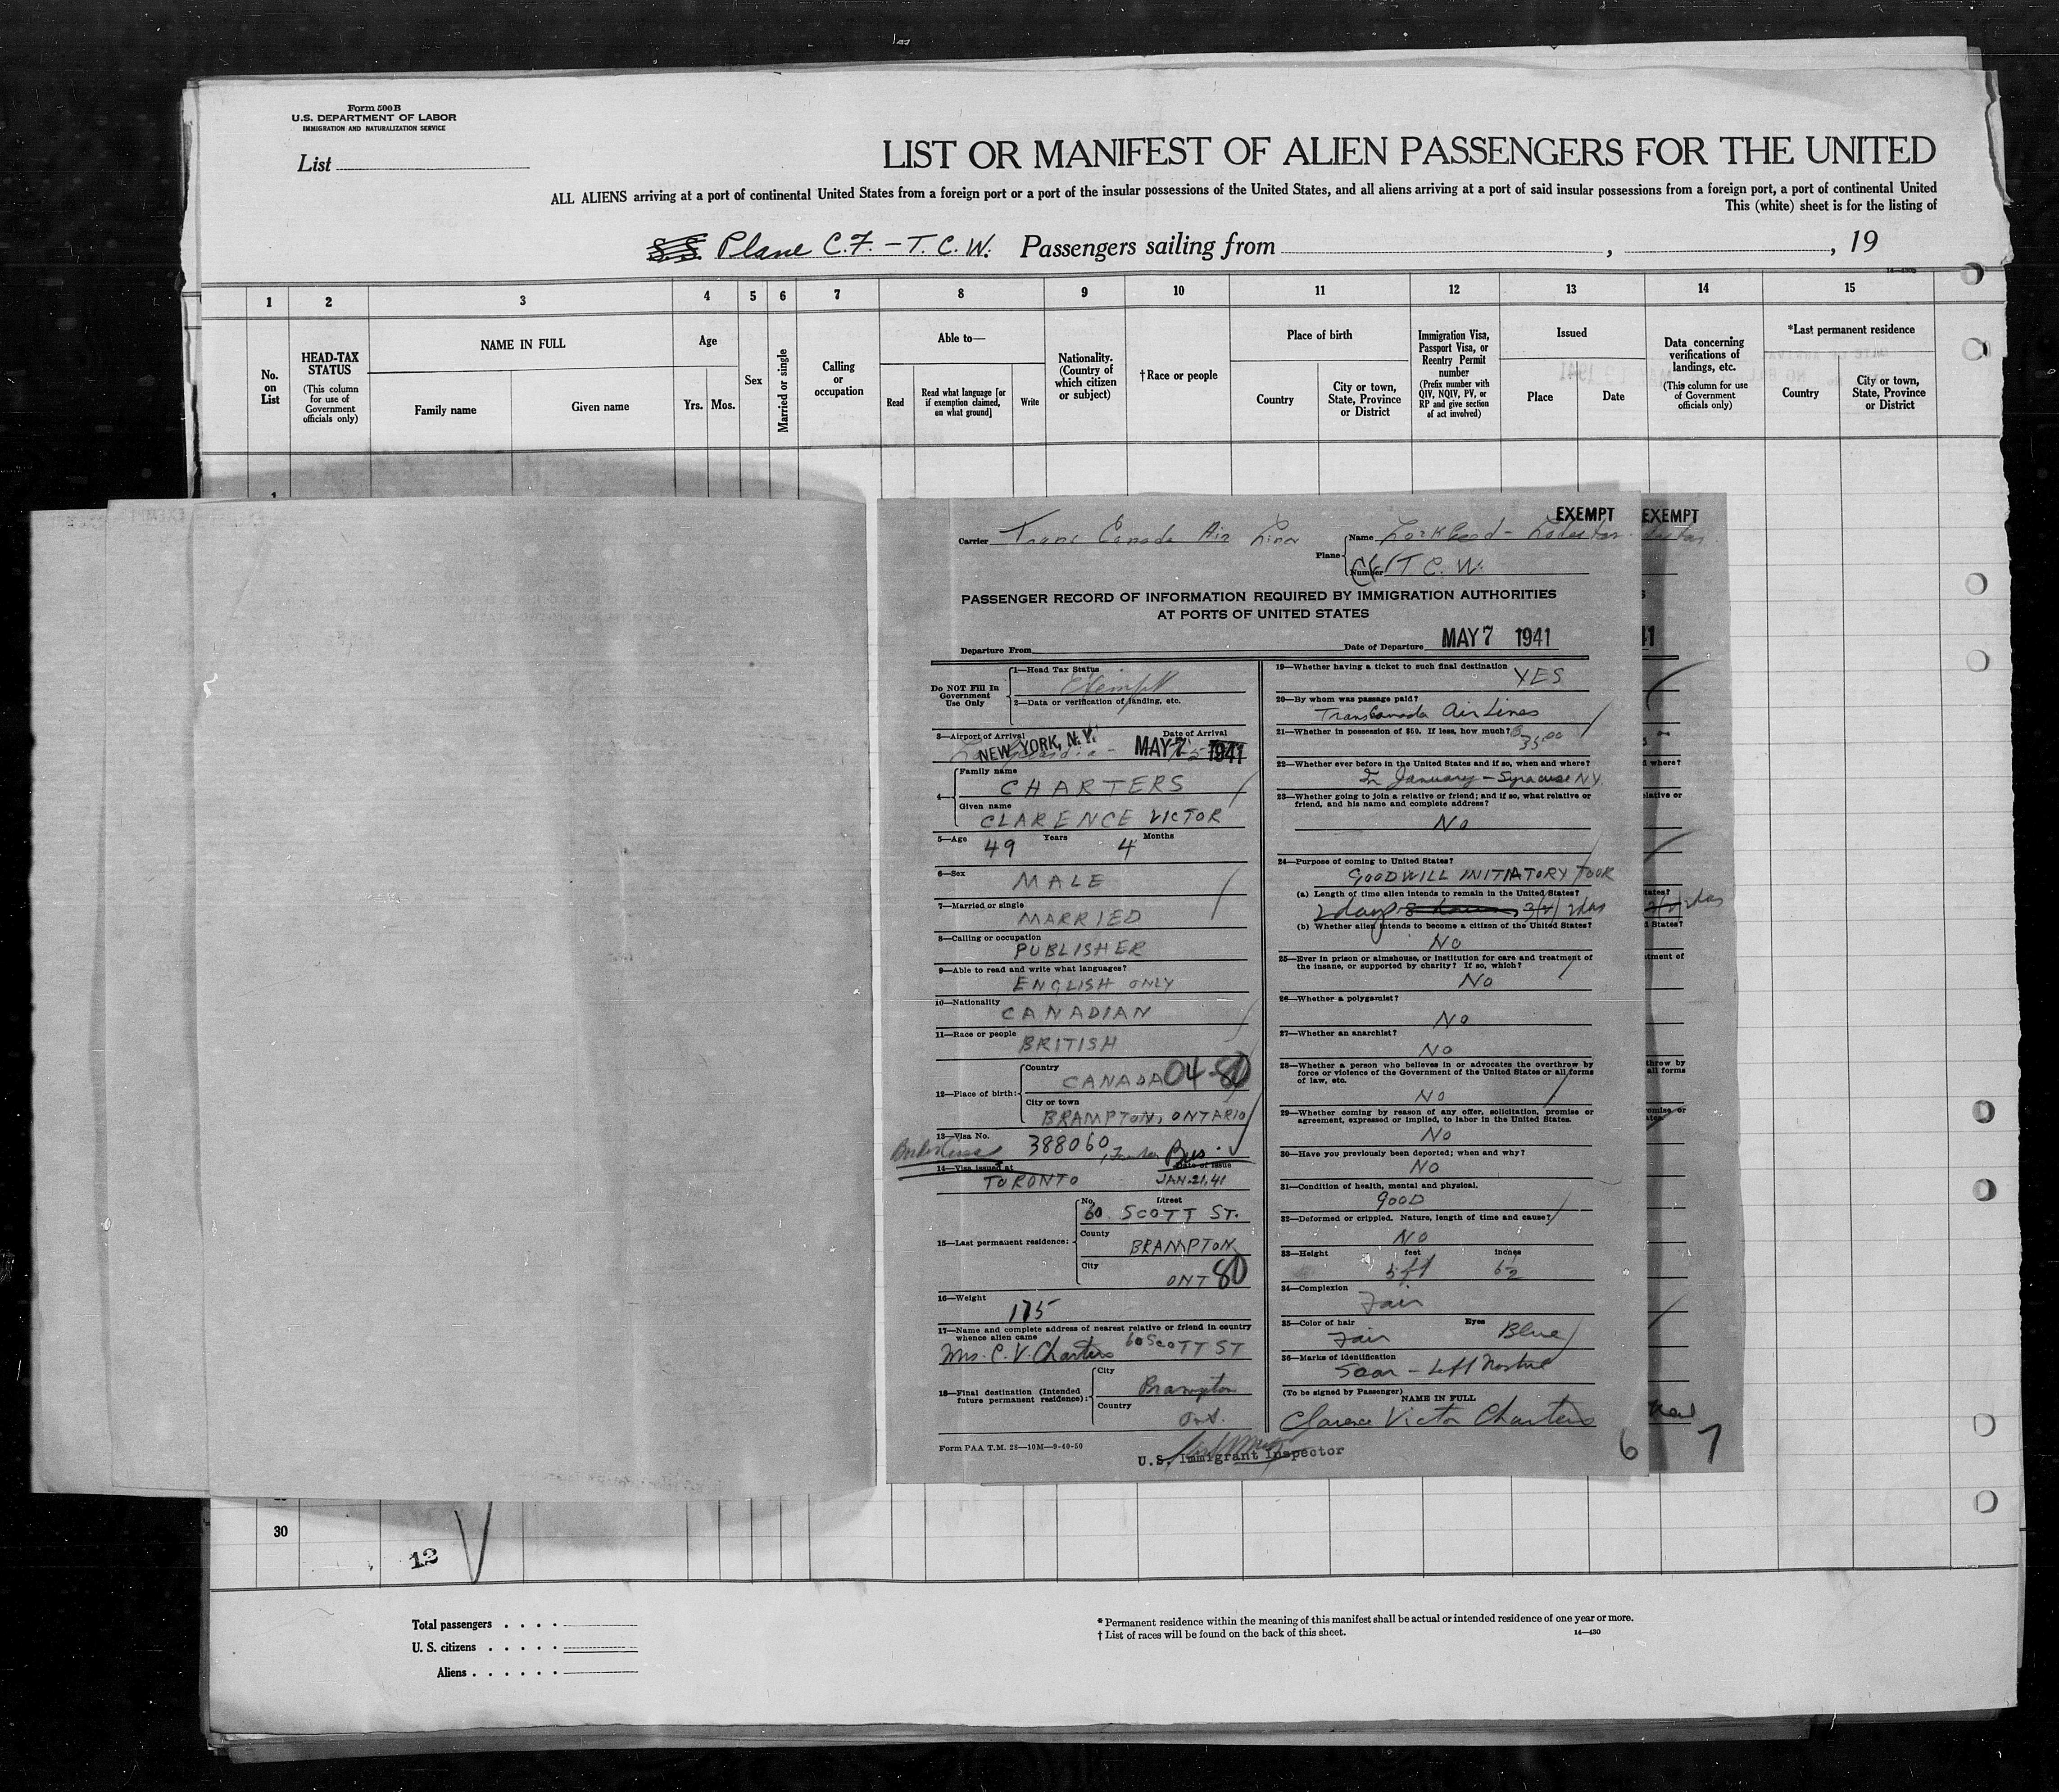 Form 500 B
U.S. DEPARTMENT OF LABOR
IMMIGRATION AND NATURALIZATION SERVICE
List
LIST OR MANIFEST OF ALIEN PASSENGERS FOR THE UNITED
ALL ALIENS arriving at a port of continental United States from a foreign port or a port of the insular possessions of the United States, and all aliens arriving at a port of said insular possessions from a foreign port, a port of continental United
This (white) sheet is for the listing of
S.S. Plane C.F. - T.C.W. Passengers sailing from , , 19
1 2 3 4 5 6 7 8 9 10 11 12 13 14 15
No. on List
HEAD-TAX STATUS (This column for use of Government officials only)
NAME IN FULL
Family name Given name
Age
Yrs. Mos.
Sex
Married or single
Calling or occupation
Able to—
Read Read what language [or if exemption claimed, on what ground] Write
Nationality. (Country of which citizen or subject)
†Race or people
Place of birth
Country City or town, State, Province or District
Immigration Visa, Passport Visa, or Reentry Permit number (Prefix number with QIV, NQIV, PV, or RP and give section of act involved)
Issued
Place Date
Data concerning verifications of landings, etc. (This column for use of Government officials only)
*Last permanent residence
Country City or town, State, Province or District
EXEMPT EXEMPT
Carrier Trans Canada Air Lines
Plane Name Lockheed - Lodestar
Number CF TCW.
PASSENGER RECORD OF INFORMATION REQUIRED BY IMMIGRATION AUTHORITIES
AT PORTS OF UNITED STATES
Departure From Date of Departure MAY 7 1941
Do NOT Fill In Government Use Only
1—Head Tax Status
Exempt
2—Data or verification of landing, etc.
3—Airport of Arrival Date of Arrival
NEW YORK, N.Y. MAY 7 1941
4— Family name
CHARTERS
Given name
CLARENCE VICTOR
5—Age 49 Years 4 Months
6—Sex
MALE
7—Married or single
MARRIED
8—Calling or occupation
PUBLISHER
9—Able to read and write what languages?
ENGLISH ONLY
10—Nationality
CANADIAN
11—Race or people
BRITISH
12—Place of birth: Country
CANADA 04-80
City or town
BRAMPTON, ONTARIO
13—Visa No. 388060 Bus.
14—Visa issued at Date of issue
TORONTO JAN. 21, 41
15—Last permanent residence: No. Street
60 SCOTT ST.
County
BRAMPTON
City
ONT 80
16—Weight
175
17—Name and complete address of nearest relative or friend in country whence alien came
Mrs. C. V. Charters 60 SCOTT ST
18—Final destination (Intended future permanent residence): City
Brampton
Country
Ont.
Form PAA T.M. 28—10M—9-40-50
U.S. Immigrant Inspector
19—Whether having a ticket to such final destination
YES
20—By whom was passage paid?
TransCanada Air Lines
21—Whether in possession of $50. If less, how much? $35.00
22—Whether ever before in the United States and if so, when and where?
In January - Syracuse N.Y.
23—Whether going to join a relative or friend; and if so, what relative or friend, and his name and complete address?
No
24—Purpose of coming to United States?
GOODWILL INITIATORY TOUR
(a) Length of time alien intends to remain in the United States?
2 days
(b) Whether alien intends to become a citizen of the United States?
No
25—Ever in prison or almshouse, or institution for care and treatment of the insane, or supported by charity? If so, which?
No
26—Whether a polygamist?
No
27—Whether an anarchist?
No
28—Whether a person who believes in or advocates the overthrow by force or violence of the Government of the United States or all forms of law, etc.
No
29—Whether coming by reason of any offer, solicitation, promise or agreement, expressed or implied, to labor in the United States.
No
30—Have you previously been deported; when and why?
No
31—Condition of health, mental and physical.
GOOD
32—Deformed or crippled. Nature, length of time and cause?
No
33—Height feet inches
5 ft 6½
34—Complexion
Fair
35—Color of hair Eyes
Fair Blue
36—Marks of identification
Scar - Left Nostril
(To be signed by Passenger) NAME IN FULL
Clarence Victor Charters
6 7
30
12
Total passengers
U. S. citizens
Aliens
* Permanent residence within the meaning of this manifest shall be actual or intended residence of one year or more.
† List of races will be found on the back of this sheet. 14—430